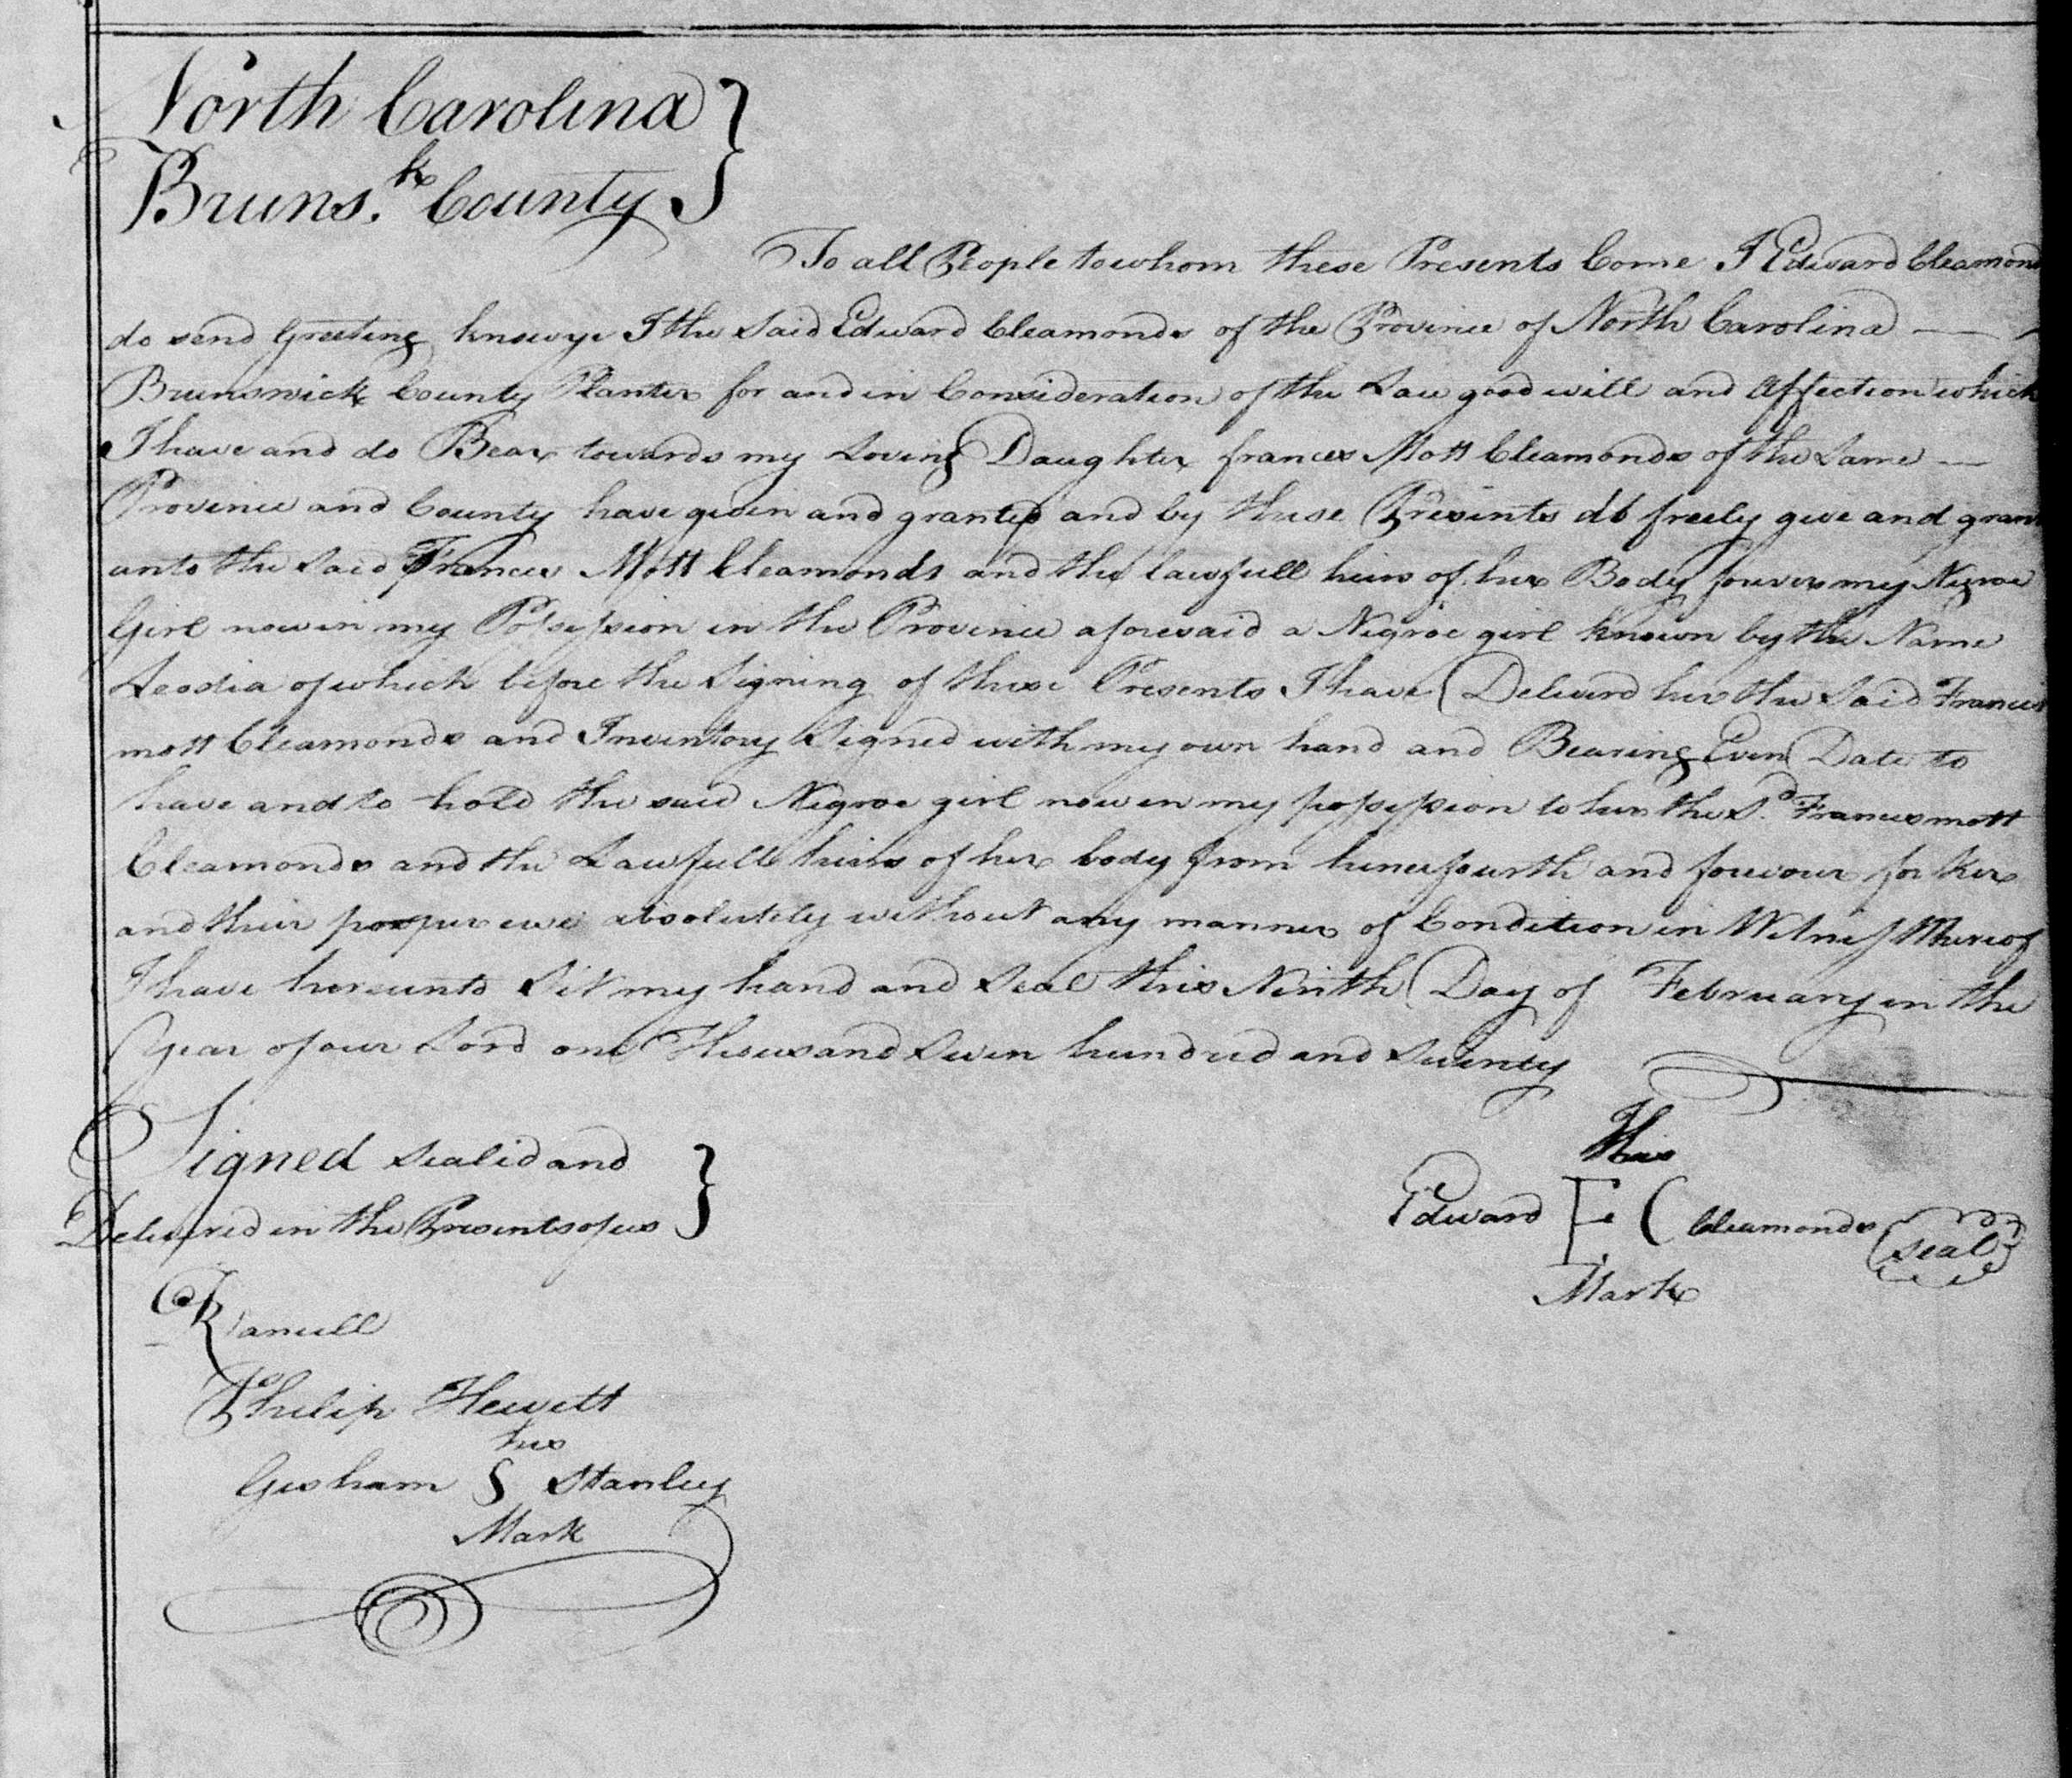 North Carolina }
Bruns.k County }
To all People to whom these Presents Come I Edward Cleamonds
do send Greeting know ye I the Said Edward Cleamonds of the Province of North Carolina —
Brunswick County Planter for and in Consideration of the Law good will and Affection which
I have and do Bear towards my Loving Daughter frances Mott Cleamonds of the Same —
Province and County have given and granted and by these Presents do freely give and grant
unto the Said Frances Mott Cleamonds and the lawfull heirs of her Body forever my Negroe
Girl now in my Possession in the Province aforesaid a Negroe girl known by the Name
of which before the Signing of these Presents I have Deliverd her the Said Frances
mott Cleamonds and Inventory Signed with my own hand and Bearing Even Date to
have and to hold the said Negroe girl now in my possession to her the S.d Frances mott
Cleamonds and the Lawfull heirs of her body from hencefourth and forevour for her
and their propper use absolutely without any manner of Condition in Witness Whereof
I have hereunto Set my hand and Seal this Ninth Day of February in the
Year of our Lord one Thousand Seven hundred and Seventy
Signed Sealed and }
Delivered in the Presents of us }
This
Edward E ( Cleamonds seal
Mark
Philip Hewett
his
Gersham S Stanley
Mark